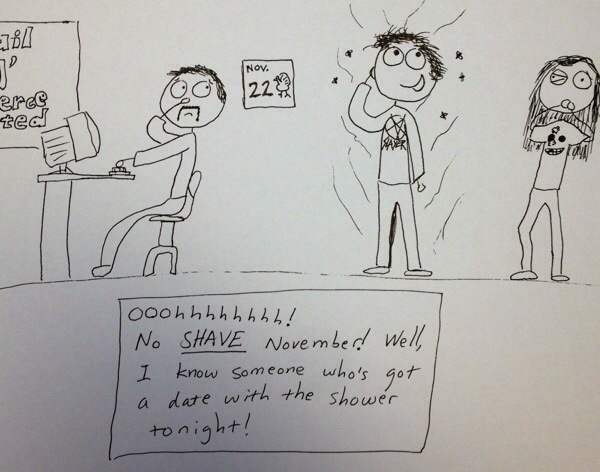 ail
NOV.
22
SLAYER
OOOhhhhhhhhh!
No SHAVE November! Well,
I know someone who's got
a date with the shower
tonight!